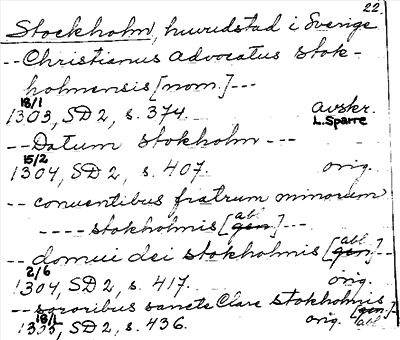 22.
Stockholm, huvudstad i Sverige
-- Christianus advocatus Stok-
holmensis [nom.] ---
18/1
1303, SD 2, s. 374. avskr.
L. Sparre
-- Datum Stokholm ---
15/2
1304, SD 2, s. 407. orig.
-- conventibus fratrum minorum
---- stokholmis [gen] abl ---
-- domui dei stokholmis [gen] abl --
2/6
1304, SD 2, s. 417. orig.
-- sororibus sancte Clare stokholmis
18/1
SD 2, s. 436. orig. [gen.] abl